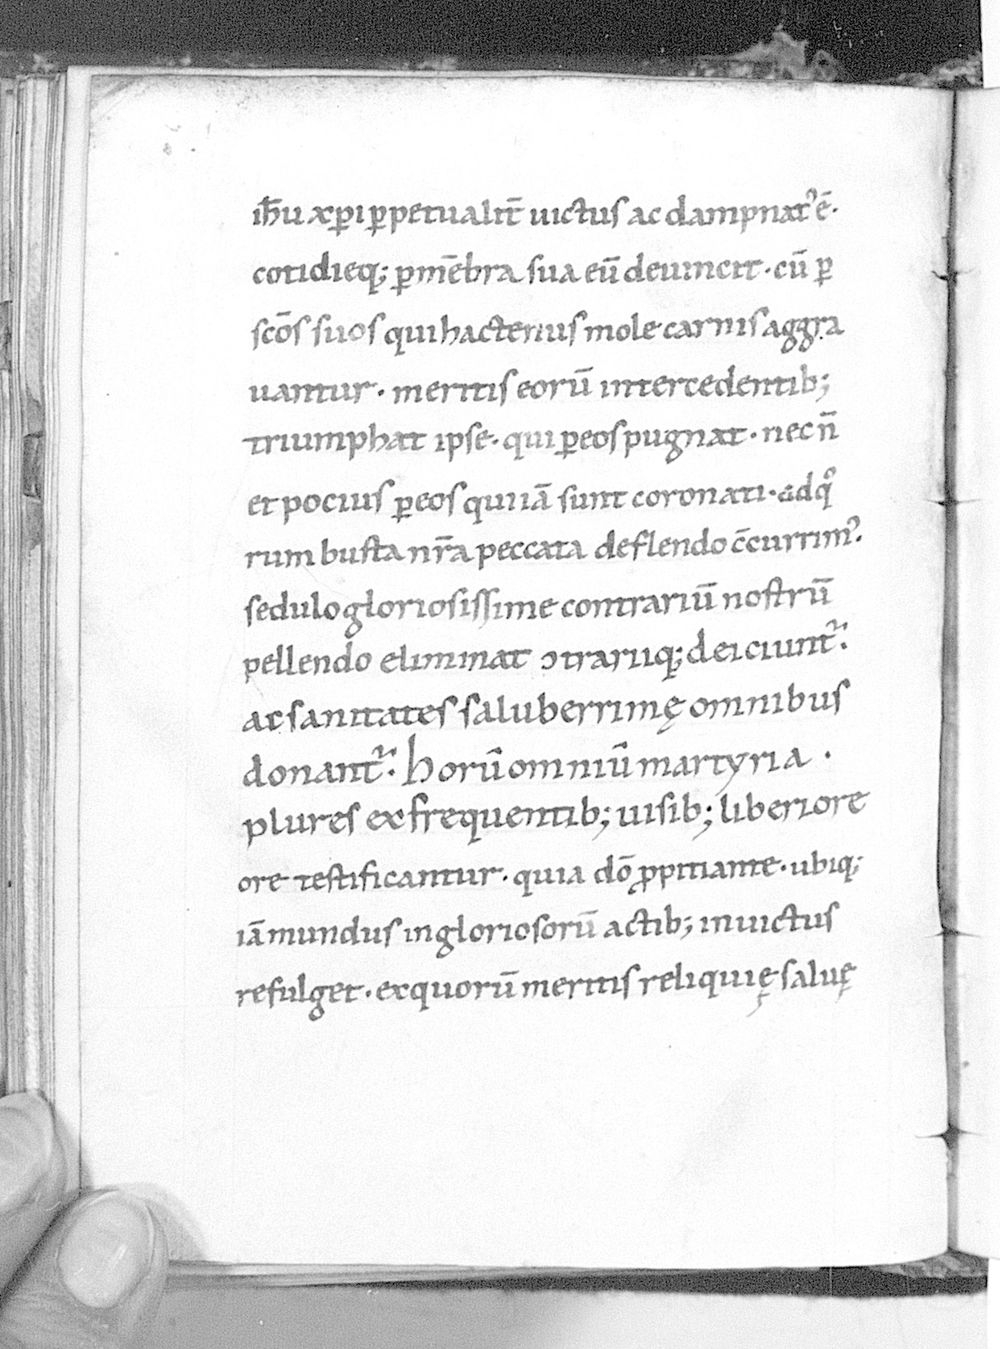 ihu xpi ꝑpetualit̄ uictus ac dampnat᷒ ē·
cotidieq; ꝑ mēbra sua eū deuincit · cū ꝑ
scōs suos qui hactenus mole carnis aggra
uantur · meritis eorū intercedentib;
triumphat ipse · qui ꝑ eos pugnat · nec n̄
et pocius ꝑ eos qui iā sunt coronati · adqͦ
rum busta nr̄a peccata deflendo c̄currim᷒.
sedulo gloriosissime contrariū nostrū
pellendo eliminat ↄtrariiq; deiciunt᷑.
ac sanitates saluberrimę omnibus
donant᷑. Horū omniū martyria ·
plures ex frequentib; uisib; liberiore
ore testificantur. quia dō ꝓpitiante · ubiq;
iā mundus in gloriosorū actib; inuictus
refulget · ex quorū meritis reliquię saluę